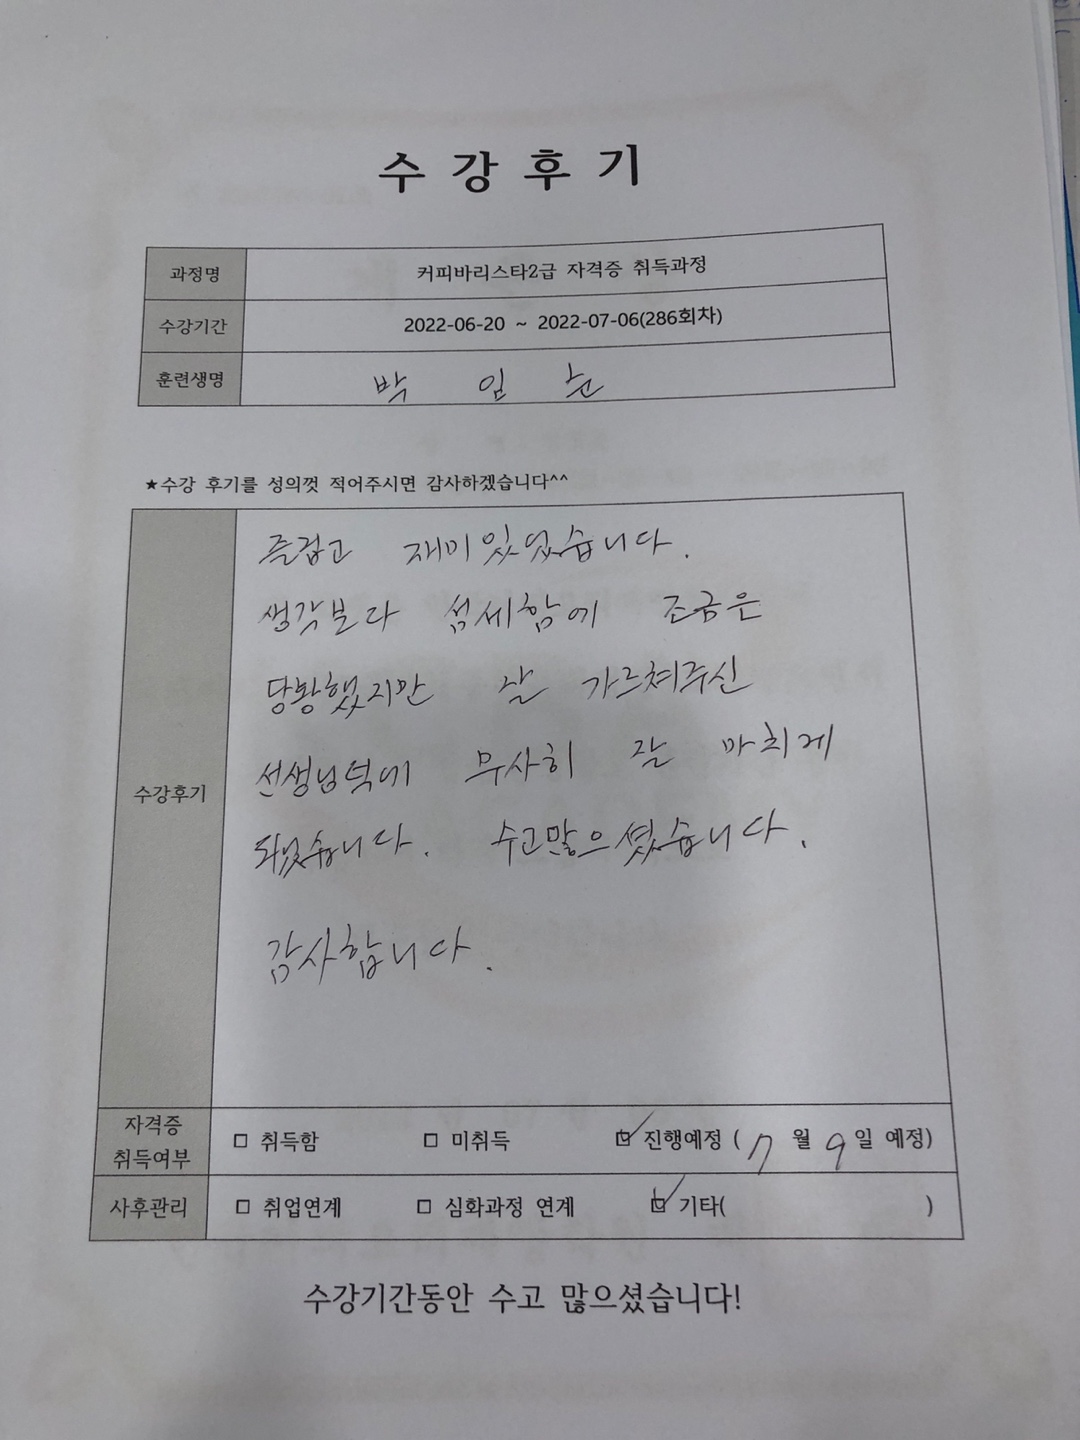 수 강 후 기
과정명 커피바리스타2급 자격증 취득과정
수강기간 2022-06-20 ~ 2022-07-06(286회차)
훈련생명 박 임 순
★수강 후기를 성의껏 적어주시면 감사하겠습니다^^
수강후기
즐겁고 재미있었습니다.
생각보다 섬세함에 조금은
당황했지만 잘 가르쳐주신
선생님덕에 무사히 잘 마치게
되었습니다. 수고많으셨습니다.
감사합니다.
자격증
취득여부
□ 취득함 □ 미취득 ☑ 진행예정 ( 7 월 9 일 예정)
사후관리 □ 취업연계 □ 심화과정 연계 ☑ 기타( )
수강기간동안 수고 많으셨습니다!